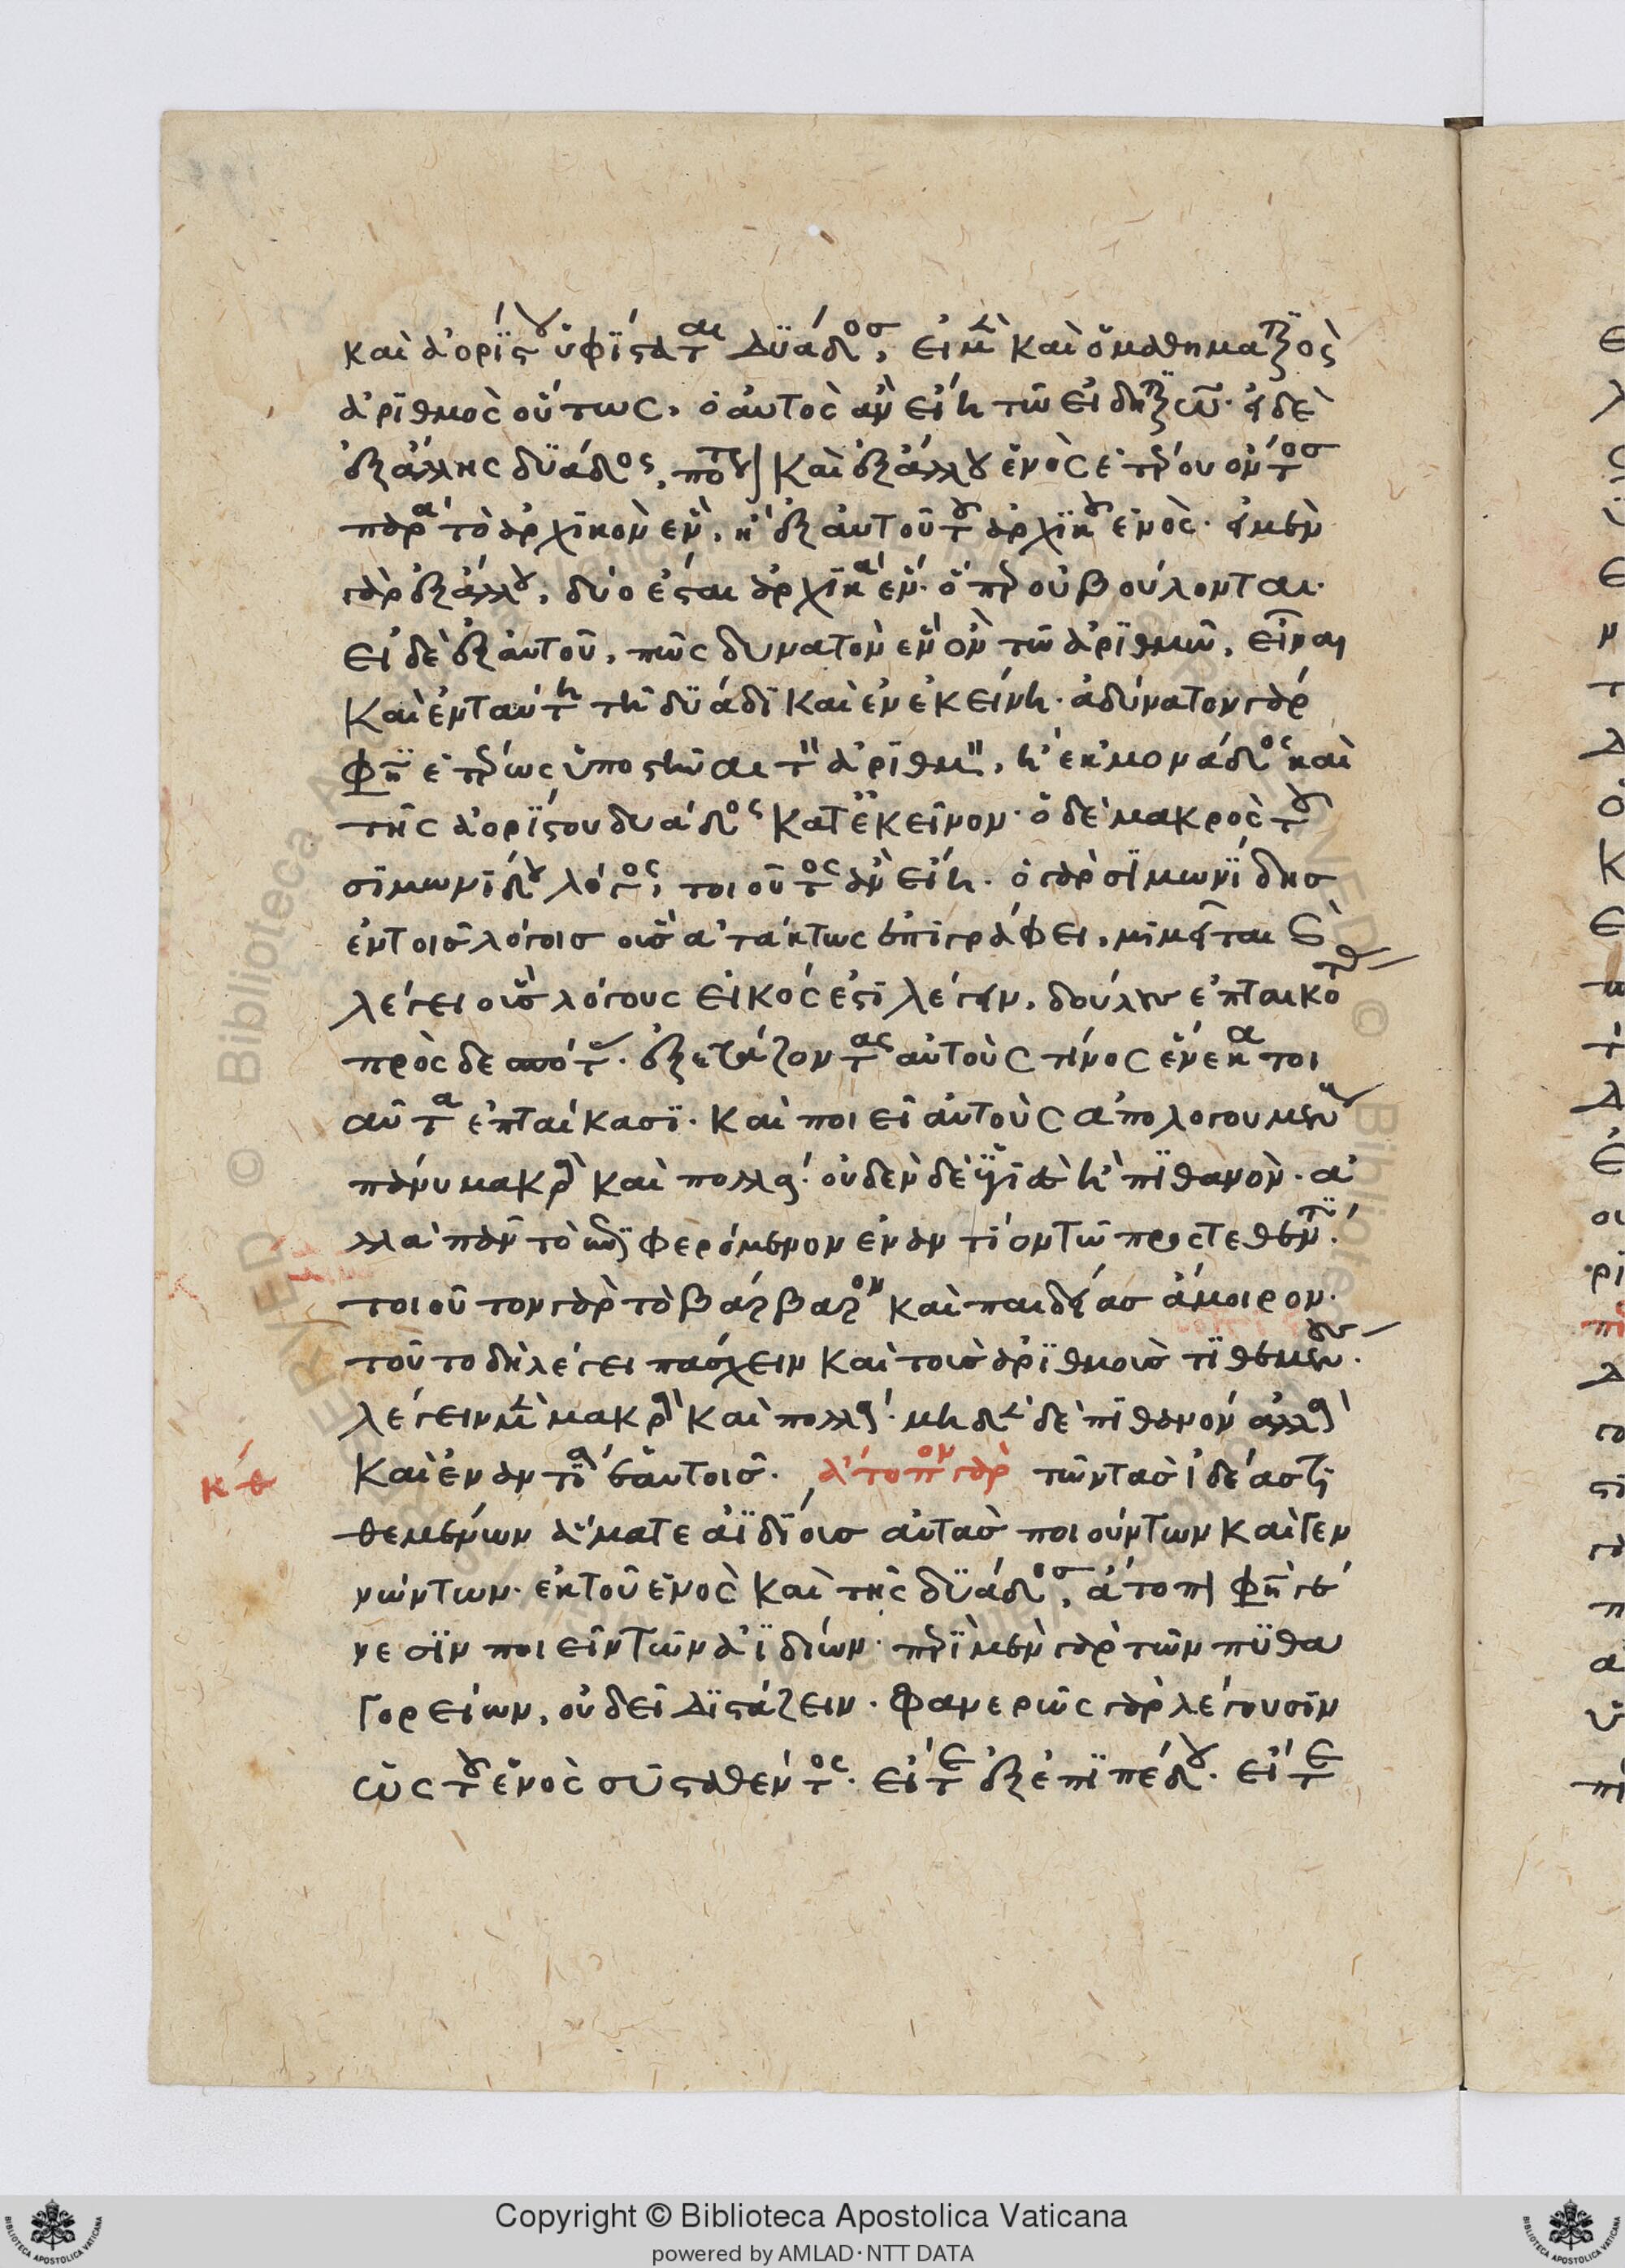 καὶ ἀορίστου ὑφίσταται δυάδος, εἰ μὲν καὶ ὁ μαθηματικὸς
ἀριθμὸς οὕτως, ὁ αὐτὸς ἂν εἴη τῷ εἰδητικῷ. εἰ δὲ
ἐξ ἄλλης δυάδος, πότερον καὶ ἐξ ἄλλου ἑνὸς ἑτέρου ὄντος
παρὰ τὸ ἀρχικὸν ἕν, ἢ ἐξ αὐτοῦ τοῦ ἀρχικοῦ ἑνός. εἰ μὲν
γὰρ ἐξ ἄλλου, δύο ἔσται ἀρχικὰ ἕν. ὅπερ οὐ βούλονται.
εἰ δὲ ἐξ αὐτοῦ, πῶς δυνατὸν ἓν ὂν τῷ ἀριθμῷ, εἶναι
καὶ ἐν ταύτῃ τῇ δυάδι καὶ ἐν ἐκείνῃ. ἀδύνατον γὰρ
φησὶν ἑτέρως ὑποστῆναι τὸν ἀριθμὸν, ἢ ἐκ μονάδος καὶ
τῆς ἀορίστου δυάδος κατ' ἐκεῖνον. ὁ δὲ μακρὸς τοῦ
σιμωνίδου λόγος, τοιοῦτος ἂν εἴη. ὁ γὰρ σιμωνίδης
ἐν τοῖς λόγοις οὓς ἀτάκτους ἐπιγράφει, μιμεῖται καὶ
λέγει οὓς λόγους εἰκός ἐστι λέγειν, δούλους ἐπταικότας
πρὸς δεσπότας ἐξετάζοντας αὐτοὺς τίνος ἕνεκα τοι
αῦτα ἐπταίκασι. καὶ ποιεῖ αὐτοὺς ἀπολογουμένους
πάνυ μακρὰ καὶ πολλά. οὐδὲν δὲ ὑγιὲς ἢ πιθανόν. ἀ
λλὰ πᾶν τὸ ἐπιφερόμενον ἐναντίον τῷ προτεθέντι.
τοιοῦτον γὰρ τὸ βάρβαρον καὶ παιδείας ἄμοιρον.
τοῦτο δὴ λέγει πάσχειν καὶ τοὺς ἀριθμοὺς τιθεμένους.
λέγειν μὲν μακρὰ καὶ πολλά. μηδὲν δὲ πιθανόν ἀλλὰ
καὶ ἐναντία ἑαυτοῖς. ἄτοπον γὰρ τῶν τὰς ἰδέας τι
κθ
θεμένων ἅμα τε ἀϊδίους αὐτὰς ποιούντων καὶ γεν
νώντων. ἐκ τοῦ ἑνὸς καὶ τῆς δυάδος, ἄτοπον φησὶ γέ
νεσιν ποιεῖν τῶν ἀϊδίων. περὶ μὲν γὰρ τῶν πυθα
γορείων, οὐ δεῖ διστάζειν. φανερῶς γὰρ λέγουσιν
ὡς τοῦ ἑνὸς συσταθέντος. εἴτε ἐξ ἐπιπέδου. εἴτε